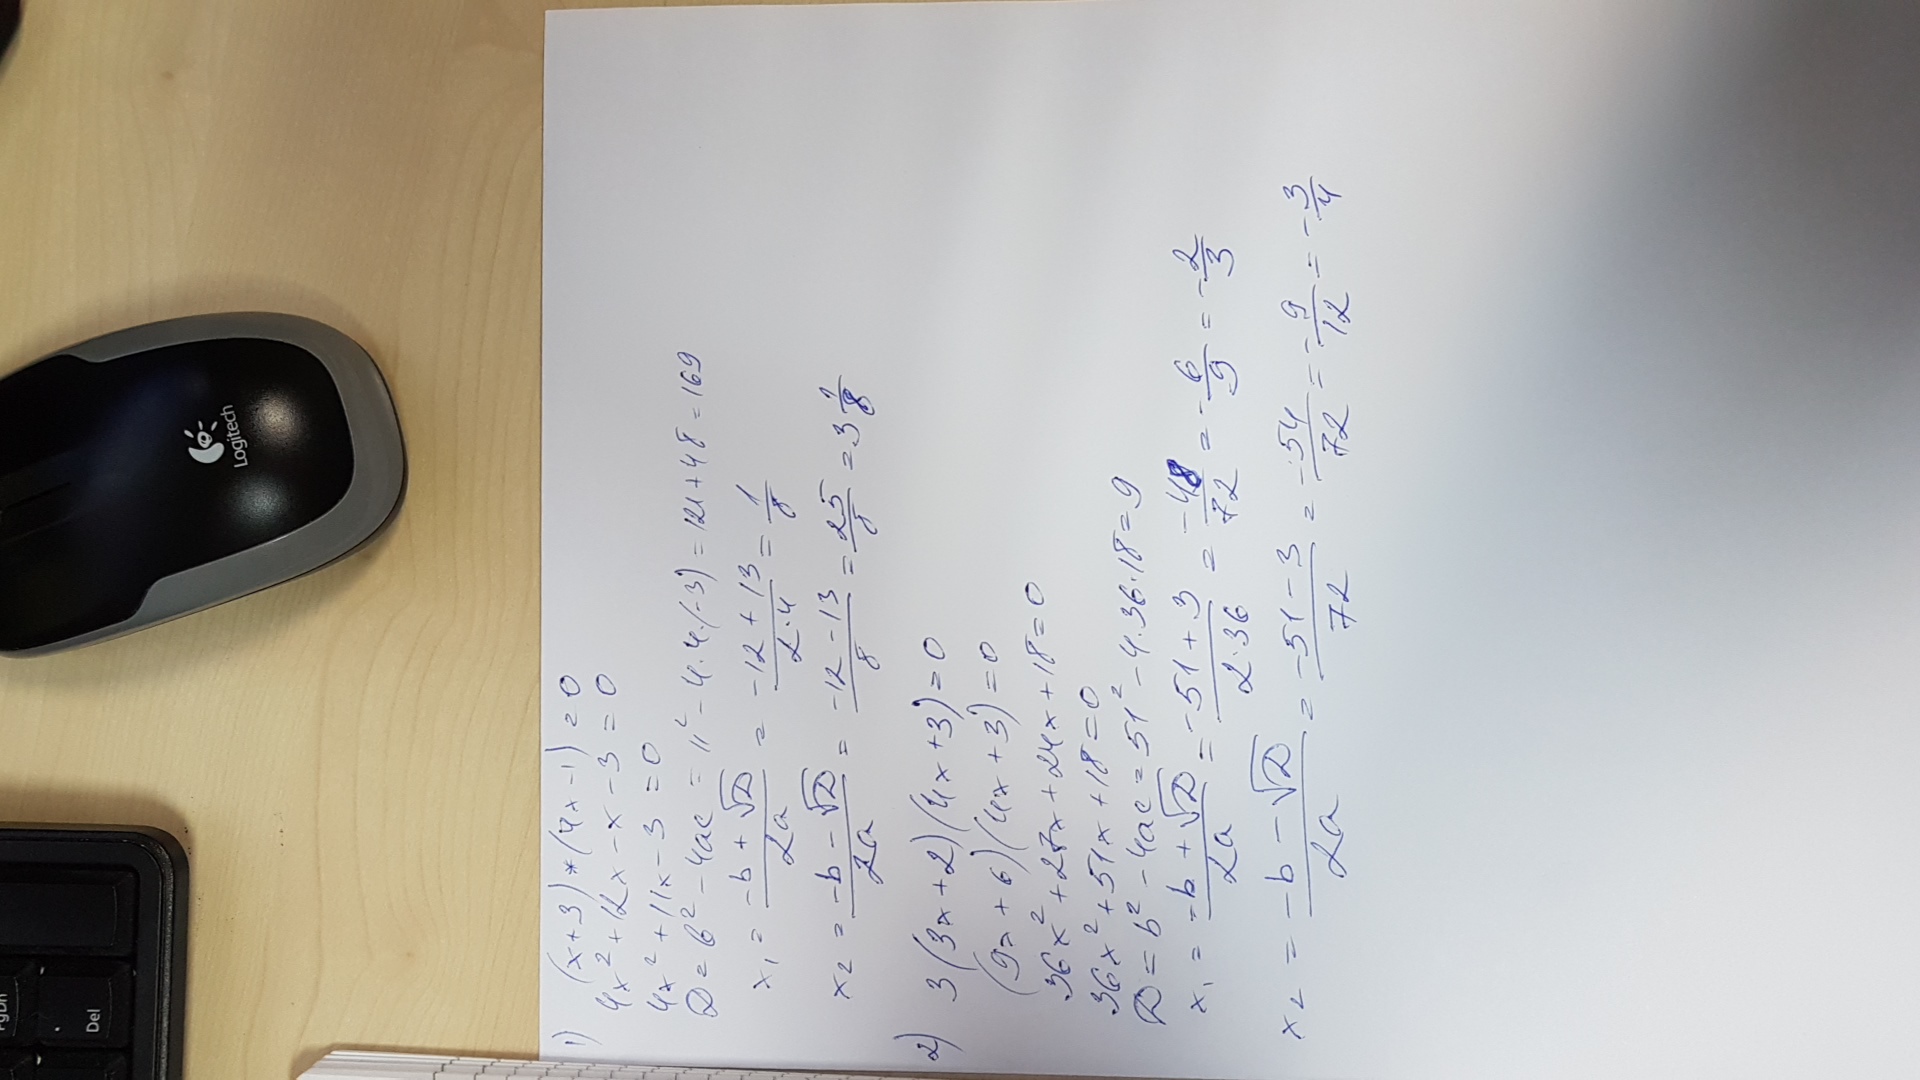 1) (x+3)*(4x-1)=0
4x²+12x-x-3=0
4x²+11x-3=0
D=b²-4ac=11²-4·4·(-3)=121+48=169
x₁=(-b+√D)/2a=(-12+13)/(2·4)=1/8
x₂=(-b-√D)/2a=(-12-13)/8=25/8=3 1/8
2) 3(3x+2)(4x+3)=0
(9x+6)(4x+3)=0
36x²+27x+24x+18=0
36x²+51x+18=0
D=b²-4ac=51²-4·36·18=9
x₁=(-b+√D)/2a=(-51+3)/(2·36)=-48/72=-6/9=-2/3
x₂=(-b-√D)/2a=(-51-3)/72=-54/72=-9/12=-3/4
Logitech
PgDn
Del